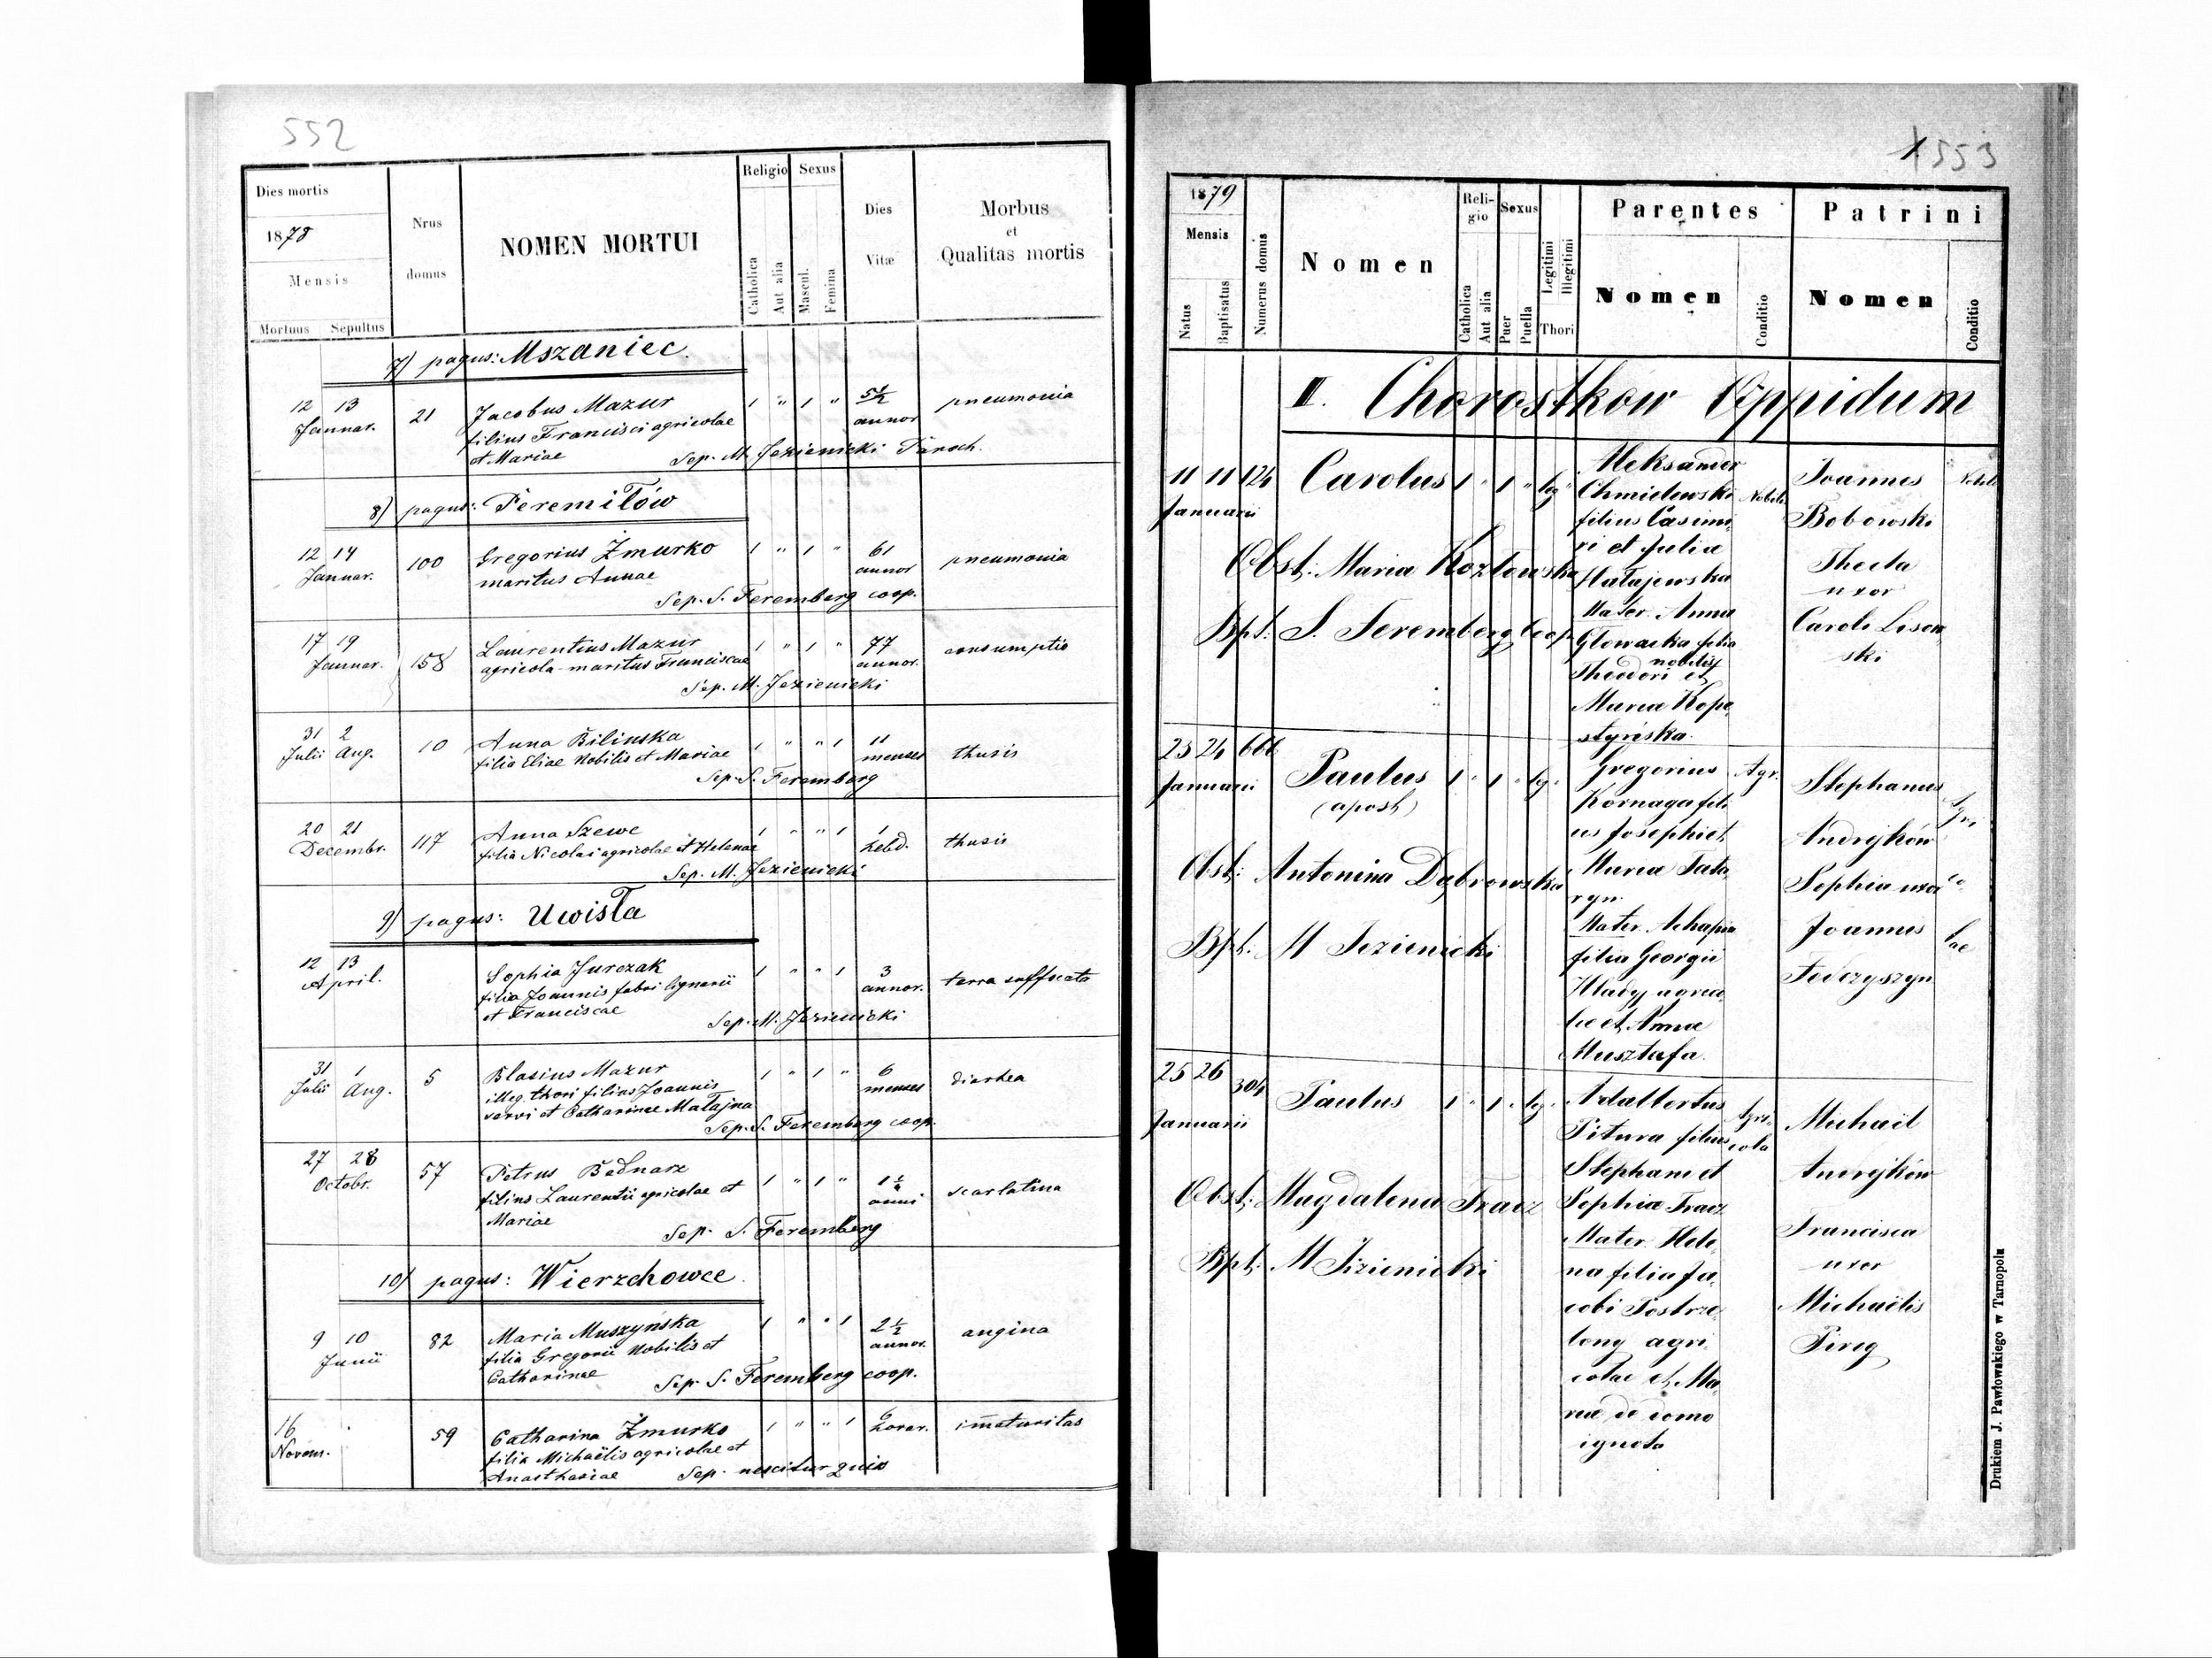 552
Dies mortis
1878
Mensis
Mortuus Sepultus
Nrus
domus
NOMEN MORTUI
Religio Sexus
Catholica
Aut alia
Mascul.
Femina
Dies
Vitæ
Morbus
et
Qualitas mortis
7) pagus: Mszaniec.
12 13 21 Jacobus Mazur 1 " 1 " 5½ pneumonia
Januar. filius Francisci agricolae annor
et Mariae Sep. M. Jezienicki Paroch.
8) pagus: Peremiłów
12 14 100 Gregorius Żmurko 1 " 1 " 61 pneumonia
Januar. maritus Annae annor
Sep. S. Feremberg coop.
17 19 158 Laurentius Mazur 1 " 1 " 77 consumptio
Januar. agricola maritus Franciscae annor.
Sep. M. Jezienicki
31 2 10 Anna Bilinska 1 " " 1 11 thusis
Julii Aug. filia Eliae Nobilis et Mariae menses
Sep. S. Feremberg
20 21 117 Anna Szewc 1 " " 1 1 thusis
Decembr. filia Nicolai agricolae et Helenae hebd.
Sep. M. Jezienicki
9) pagus: Uwisła
12 13 Sophia Jurczak 1 " " 1 3 terra suffocata
April. filia Joannis fabri lignarii annor.
et Franciscae Sep. M. Jezienicki
31 1 5 Blasius Mazur 1 " 1 " 6 diarhea
Julii Aug. illeg. thori filius Joannis menses
servi et Catharinae Matajna
Sep. S. Feremberg coop.
27 28 57 Petrus Bednarz 1 " 1 " 1½ scarlatina
Octobr. filius Laurentii agricolae et anni
Mariae Sep. S. Feremberg
10) pagus: Wierzchowce.
9 10 82 Maria Muszyńska 1 " " 1 2½ angina
Junii filia Gregorii Nobilis et annor.
Catharinae Sep. S. Feremberg coop.
16 59 Catharina Żmurko 1 " " 1 6 immaturitas
Novem. filia Michaëlis agricolae et horar.
Anasthasiae Sep. nescitur quis
553
1879
Mensis
Natus
Baptisatus
Numerus domus
Nomen
Religio
Sexus
Catholica
Aut alia
Puer
Puella
Legitimi
Illegitimi
Thori
Parentes
Nomen
Conditio
Patrini
Nomen
Conditio
II. Chorostków Oppidum
11 11 124 Carolus 1 " 1 " leg "
Januarii
Obst: Maria Kozłowska
Bpt: S. Feremberg Coop.
Aleksander
Chmielewski
filius Casimi
ri et Juliæ
Hałajewska
Mater. Anna
Głowacka filia
nobilis
Theodori et
Mariæ Kope
styńska.
Nobilis
Joannes
Bobowski
Thecla
uxor
Caroli Lison
ski
Nobil
23 24 666 Paulus 1 " 1 " leg.
Januarii (apost)
Obst: Antonina Dąbrowska
Bpt: M Jezienicki
Gregorius
Kornaga fili
us Josephi et
Mariæ Tata
ryn.
Mater. Achapia
filia Georgii
Hlady agrico
læ et Annæ
Musztafa.
Agr.
Stephanus
Andrejków
Sophia uxor
Joannis
Fedczyszyn
Agri
co
lae
25 26 304 Paulus 1 " 1 " leg.
Januarii
Obst: Magdalena Tracz
Bpt: M Jezienicki
Adalbertus
Pitura filius
Stephani et
Sophiæ Tracz
Mater. Hele
na filia Ja
cobi Postrze
lony agri
colae et Ma
riæ de domo
ignota
Agri
cola
Michaël
Andrejków
Francisca
uxor
Michaëlis
Pirog
Drukiem J. Pawłowskiego w Tarnopolu